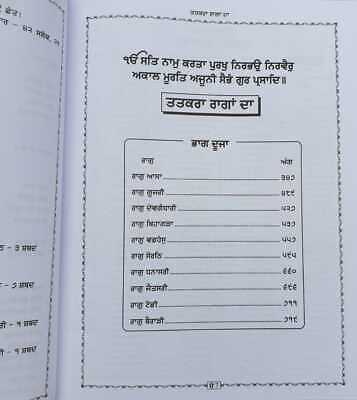 ਤਤਕਰਾ ਰਾਗਾਂ ਦਾ
ੴ ਸਤਿ ਨਾਮੁ ਕਰਤਾ ਪੁਰਖੁ ਨਿਰਭਉ ਨਿਰਵੈਰੁ
ਅਕਾਲ ਮੂਰਤਿ ਅਜੂਨੀ ਸੈਭੰ ਗੁਰ ਪ੍ਰਸਾਦਿ॥
ਤਤਕਰਾ ਰਾਗਾਂ ਦਾ
ਭਾਗ ਦੂਜਾ
ਰਾਗੁ ਅੰਗ
ਰਾਗੁ ਆਸਾ ੩੪੭
ਰਾਗੁ ਗੂਜਰੀ ੪੮੯
ਰਾਗੁ ਦੇਵਗੰਧਾਰੀ ੫੨੭
ਰਾਗੁ ਬਿਹਾਗੜਾ ੫੩੭
ਰਾਗੁ ਵਡਹੰਸੁ ੫੫੭
ਰਾਗੁ ਸੋਰਠਿ ੫੯੫
ਰਾਗੁ ਧਨਾਸਰੀ ੬੬੦
ਰਾਗੁ ਜੈਤਸਰੀ ੬੯੬
ਰਾਗੁ ਟੋਡੀ ੭੧੧
ਰਾਗੁ ਬੈਰਾੜੀ ੭੧੯
- ੩ ਸ਼ਬਦ
- ੭ ਸ਼ਬਦ
- ੧ ਸ਼ਬਦ
ਰੀ - ੧ ਸ਼ਬਦ